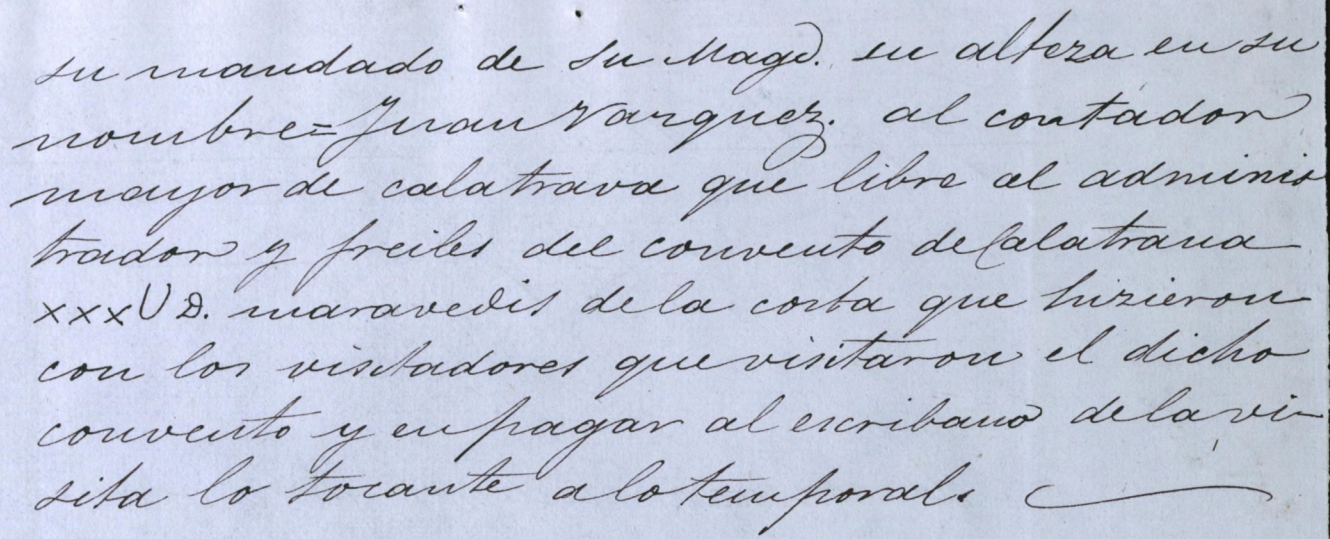 su mandado de Su Magd. su alteza en su
nombre= Juan Vazquez. al contador
mayor de calatrava que libre al adminis
trador y freiles del convento de Calatraua
xxxU D. maravedis de la costa que hizieron
con los visitadores que visitaron el dicho
convento y en pagar al escribano de la vi-
sita lo tocante a lo temporal.